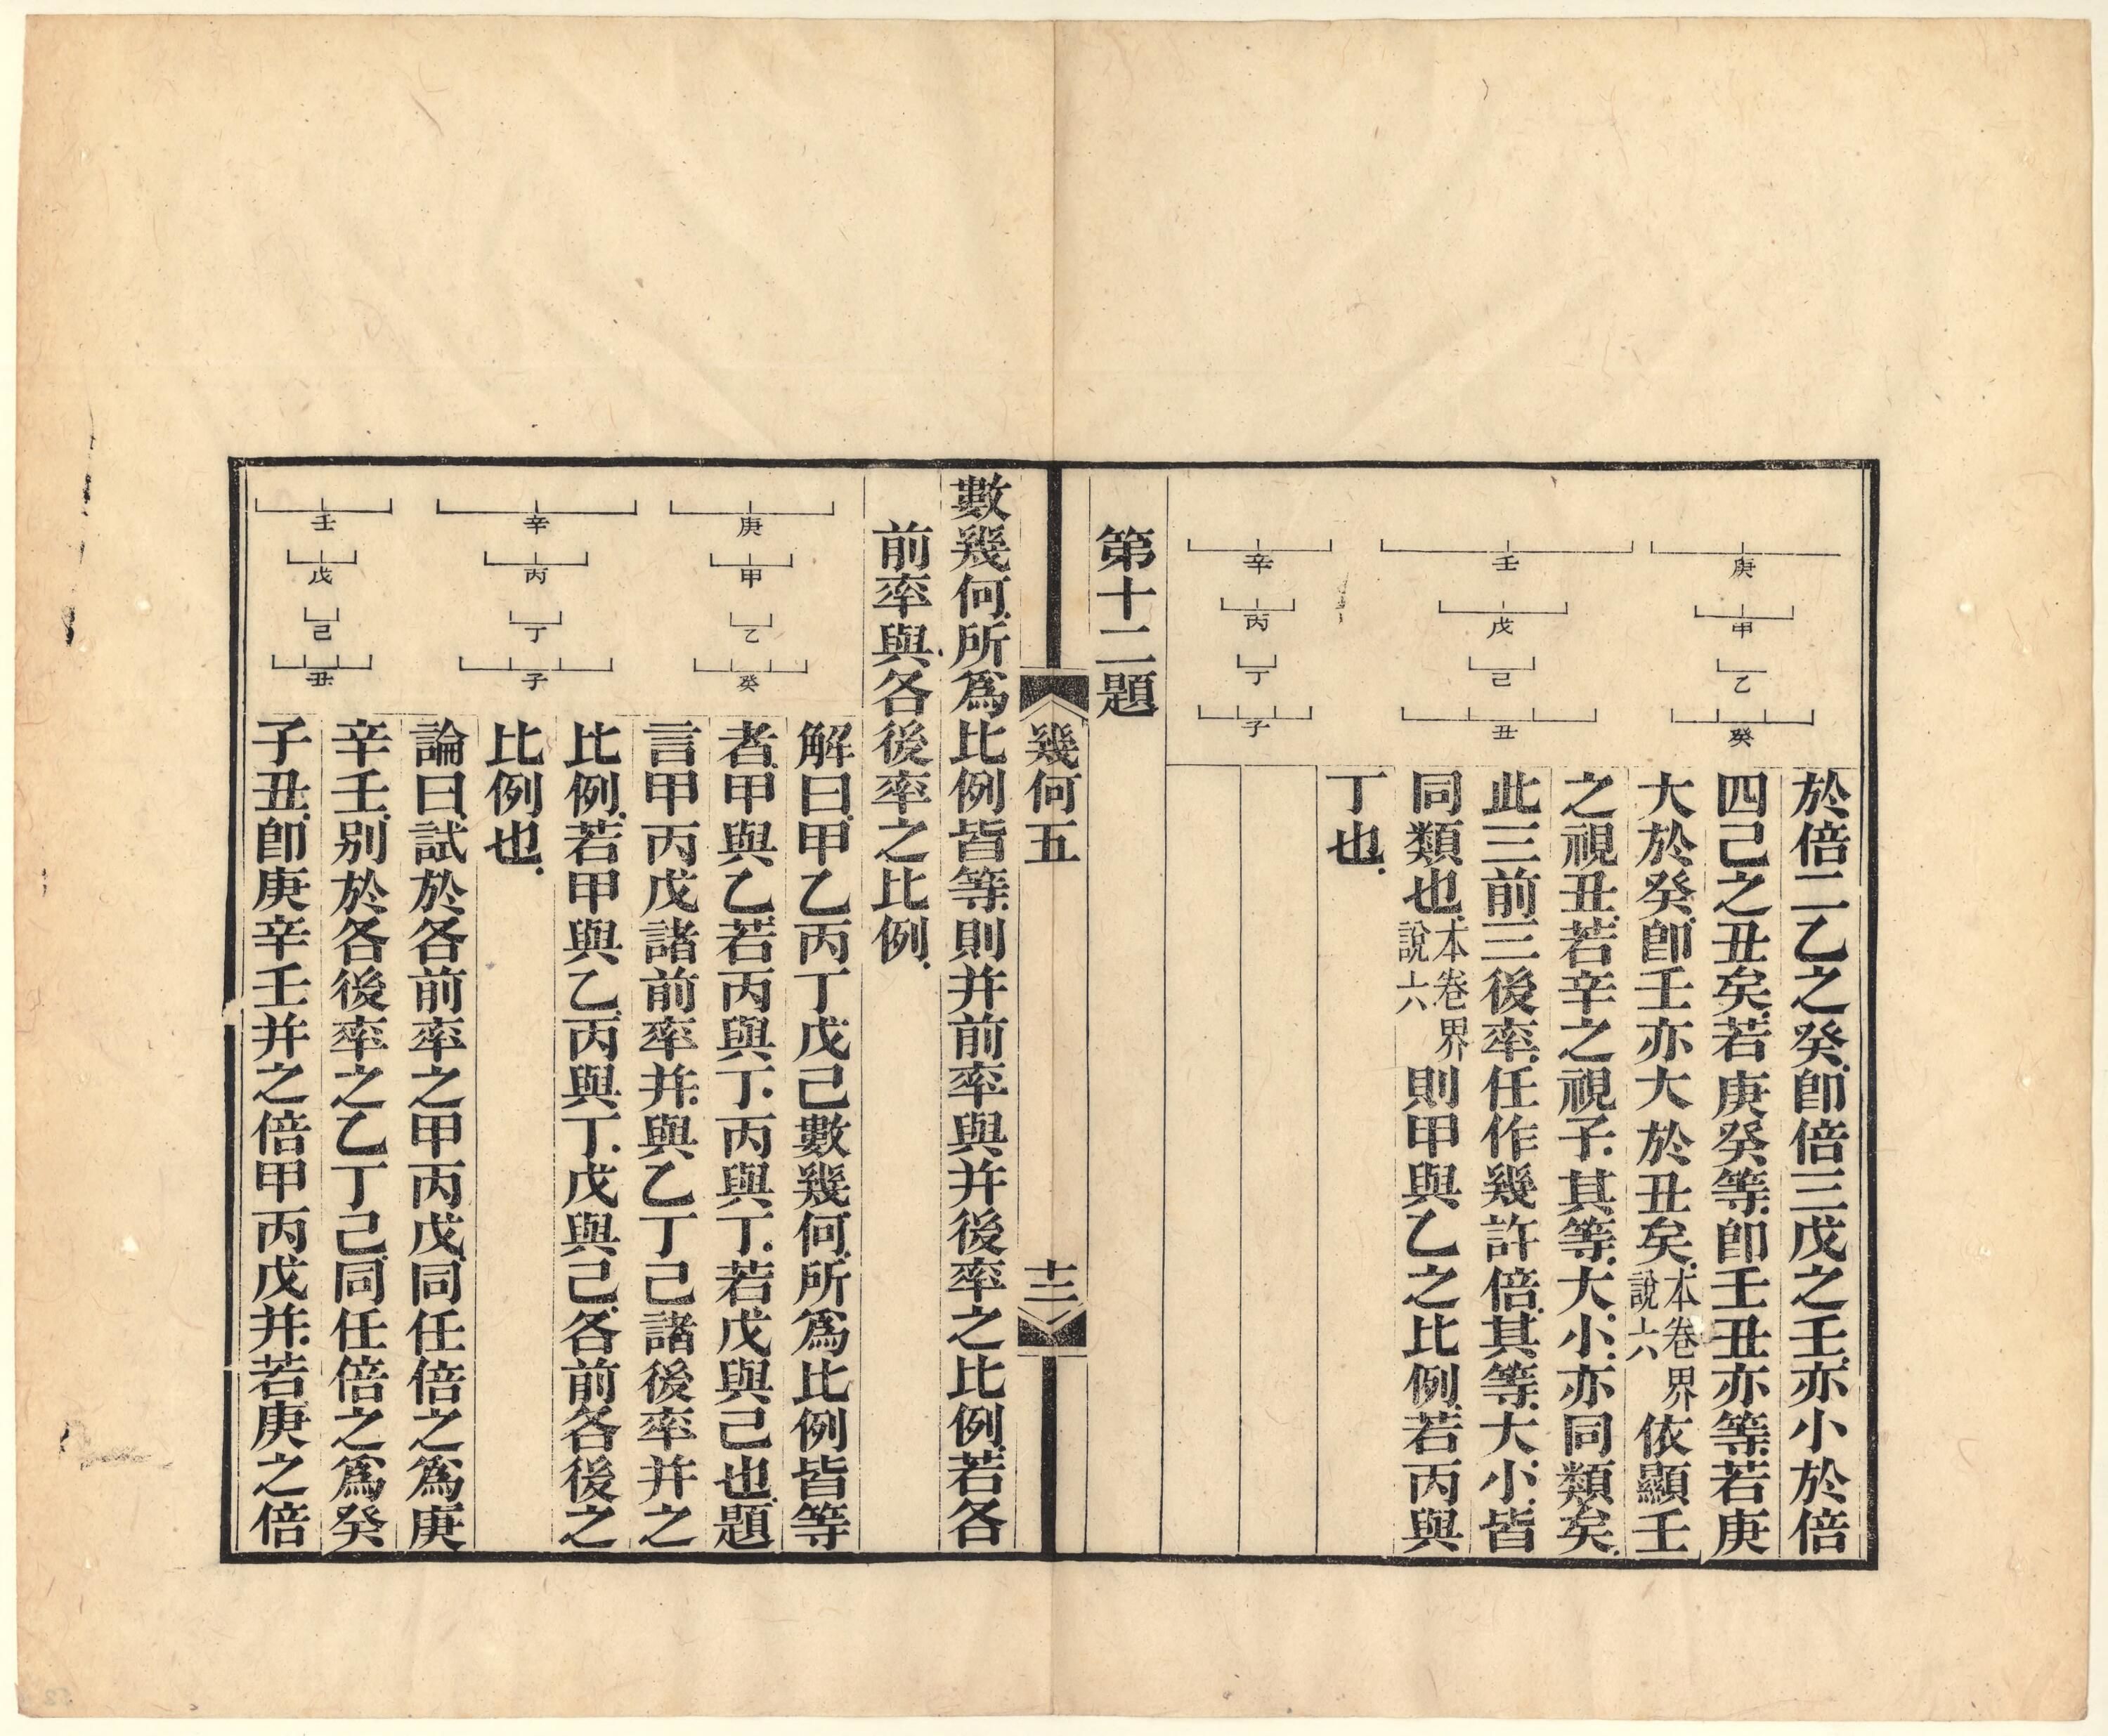 庚 甲 乙 癸
壬 戊 己 丑
辛 丙 丁 子
於倍二乙之癸即倍三戊之壬亦小於倍
四己之丑矣若庚癸等即壬丑亦等若庚
大於癸即壬亦大於丑矣本卷界說六依顯壬
之視丑若辛之視子其等大小亦同類矣
此三前三後率任作幾許倍其等大小皆
同類也本卷界說六則甲與乙之比例若丙與
丁也
第十二題
幾何五 十三
數幾何所爲比例皆等則并前率與并後率之比例若各
前率與各後率之比例
庚 甲 乙 癸
辛 丙 丁 子
壬 戊 己 丑
解曰甲乙丙丁戊己數幾何所爲比例皆等
者甲與乙若丙與丁丙與丁若戊與己也題
言甲丙戊諸前率并與乙丁己諸後率并之
比例若甲與乙丙與丁戊與己各前各後之
比例也
論曰試於各前率之甲丙戊同任倍之爲庚
辛壬別於各後率之乙丁己同任倍之爲癸
子丑即庚辛壬并之倍甲丙戊并若庚之倍